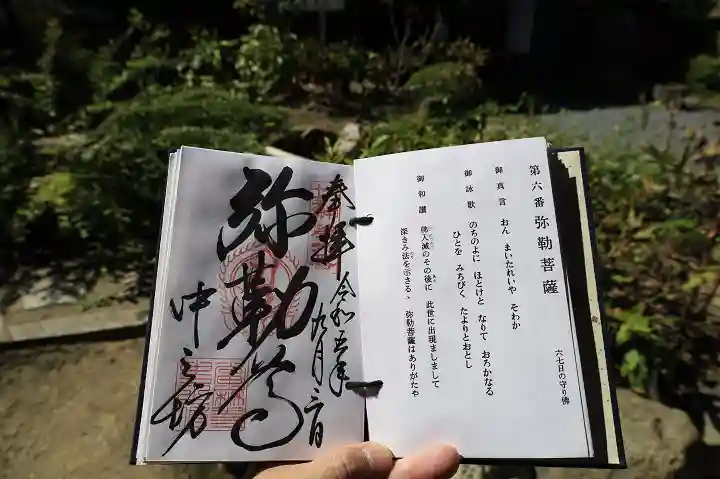 第六番 弥勒菩薩
六七日の守り佛
御真言 おん まいたれいや そわか
御詠歌 のちのよに ほとけと なりて おろかなる
ひとを みちびく たよりとおとし
御和讃 佛入滅のその後に 此世に出現ましまして
深きみ法を示さる、 弥勒菩薩はありがたや
奉拝 令和五年九月二日
弥勒尊
中之坊